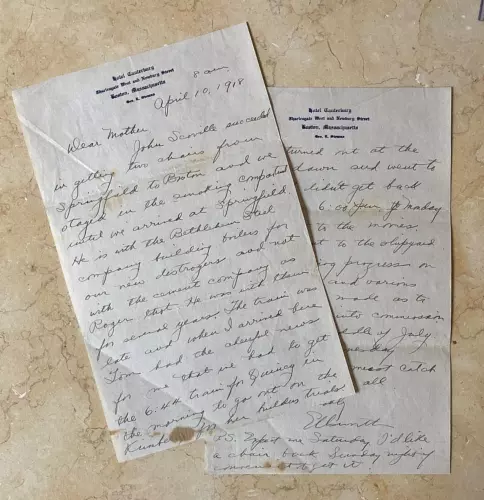 Hotel Canterbury
Charlesgate West and Newbury Street
Boston, Massachusetts
Geo. E. Stearns
8 am
April 10, 1918
Dear Mother
John Scoville succeeded
in getting two chairs from
Springfield to Boston and we
stayed in the smoking compartment
until we arrived at Springfield.
He is with the Bethlehem Steel
company building boilers for
our new destroyers and not
with the cement company as
Roger thot. He was with them
for several years. The train was
late and when I arrived here
Tom had the cheerful news
for me that we had to get
the 6:44 train for Quincy in
the morning to go out on the
her builders trials
Hotel Canterbury
Charlesgate West and Newbury Street
Boston, Massachusetts
Geo. E. Stearns
turned out at the
dawn and went to
didn't get back
6:00 Monday
to the movies.
to the shipyard
progress on
and various
made as to
into commission
middle of July
must catch
all
Ellsworth
P.S. Expect me Saturday I'd like
a chair back Sunday night if
convenient to get it